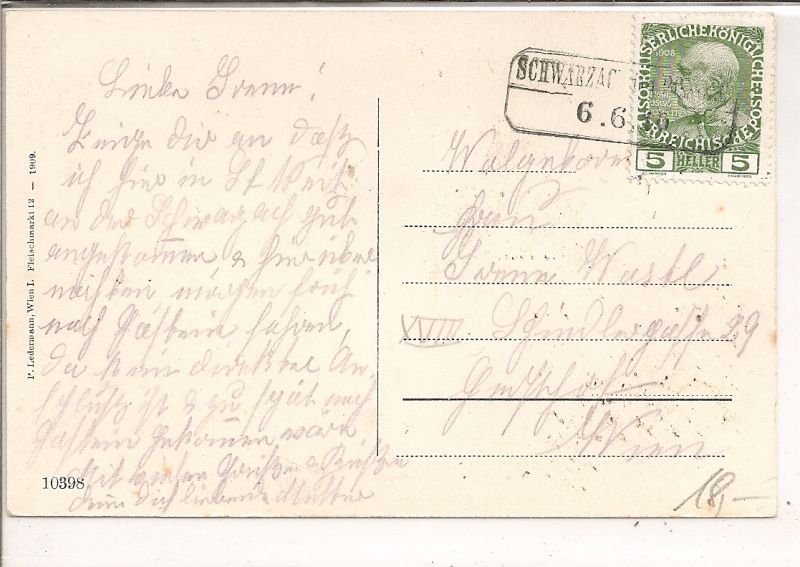 Liebe Irene!
Zeige dir an daß
ich hier in St Veit
an der Schwarzach gut
angekommen & hier über
nachten morgen früh
nach Gastein fahren,
da kein direkter An
schluß ist & zu spät nach
Gastein gekommen wäre
Mit vielen Grüßen & Küssen
Deine dich liebende Mutter
P. Ledermann, Wien I. Fleischmarkt 12 — 1909.
10398
SCHWARZAC
6.6.
KAISERLICHE KÖNIGLICHE
ÖSTERREICHISCHE
1908
5 HELLER 5
Wolgeboren
Frau
Irene Wastl
XVIII Schindlergasse 29
Gersthof
Wien
18,-